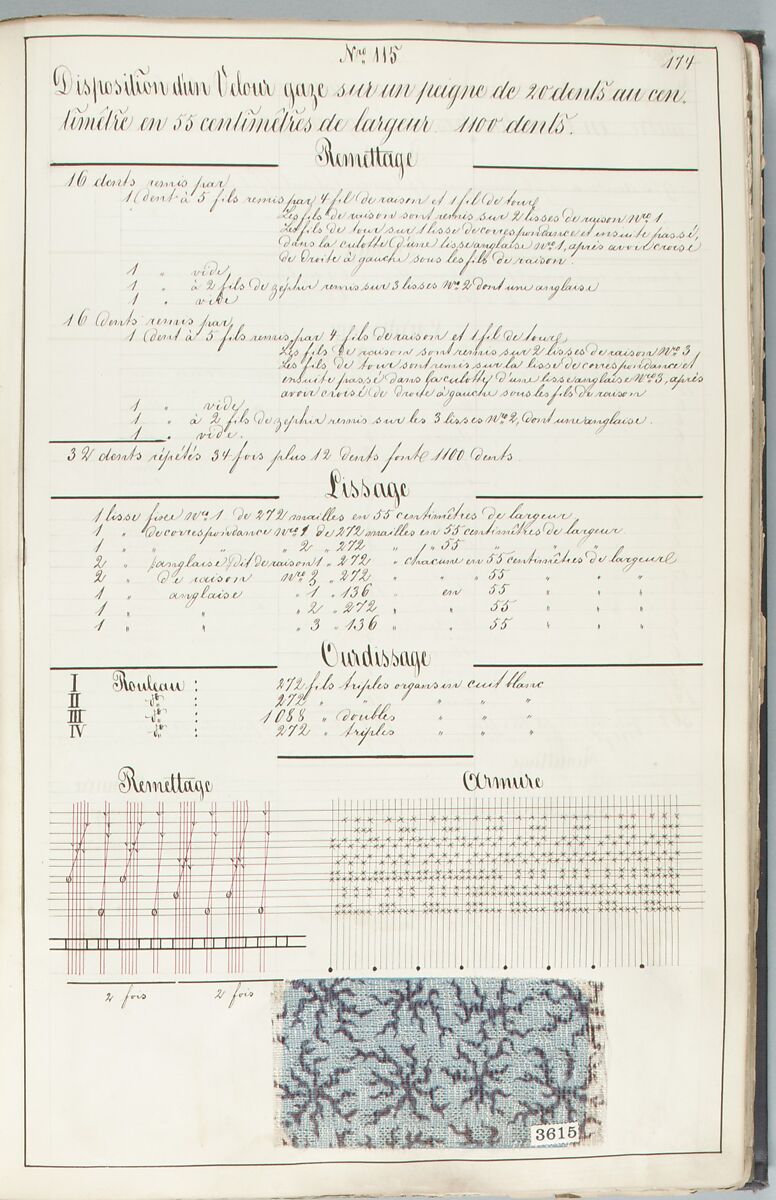 Nro 115
174
Disposition d'un Velour gaze sur un peigne de 20 dents au cen.
timêtre en 55 centimêtres de largeur. 1100 dents.
Remettage
16 dents remis par
1 dent à 5 fils remis par 4 fil de raison et 1 fil de tour
Les fils de raison sont remis sur 2 lisses de raison Nro 1
Les fils de tour sur 1 lisse de correspondance et ensuite passé,
dans la culotte d'une lisse anglaise Nro 1, après avoir croisé
de droite à gauche sous les fils de raison
1 " vide
1 " à 2 fils de zépher remis sur 3 lisses Nro 2 dont une anglaise
1 " vide
16 dents remis par
1 dent à 5 fils remis par 4 fils de raison et 1 fil de tour
Les fils de raison sont remis sur 2 lisses de raison Nro 3
Les fils de tour sont remis sur la lisse de correspondance et
ensuite passé dans la culotte d'une lisse anglaise Nro 3, après
avoir croisé de droite à gauche sous les fils de raison
1 " vide
1 " à 2 fils de zepher remis sur les 3 lisses Nro 2, dont une anglaise.
1 " vide.
32 dents répétés 34 fois plus 12 dents font 1100 dents
Lissage
1 lisse fixe Nro 1 de 272 mailles en 55 centimêtres de largeur
1 " de correspondance Nro 1 de 272 mailles en 55 centimêtres de largeur
1 " " " 2 " 272 " " 55 " " "
2 " anglaise dit de raison 1 " 272 " chacune en 55 centimêtres de largeur
2 " de raison Nro 3 " 272 " " " 55 " " "
1 " anglaise " 1 " 136 " en 55 " " "
1 " " " 2 " 272 " " 55 " " "
1 " " " 3 " 136 " " 55 " " "
Ourdissage
I Rouleau : 272 fils triples organsin cuit blanc
II do : 272 " " " " "
III do : 1088 " doubles " " "
IV do : 272 " triples " " "
Remettage
Armure
2 fois 2 fois
3615